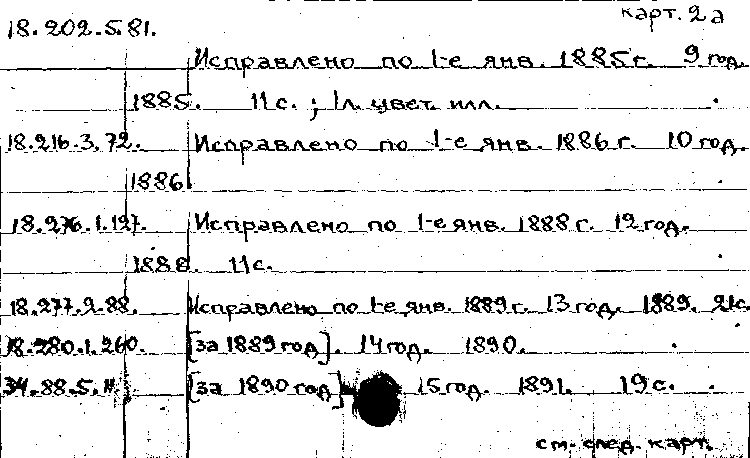 карт. 2а
18.202.5.81.
Исправлено по 1-е янв. 1885 г. 9 год.
1885. 11 с. ; 1 л. цвет. илл.
18.216.3.72. Исправлено по 1-е янв. 1886 г. 10 год.
1886
18.276.1.127. Исправлено по 1-е янв. 1888 г. 12 год.
1888. 11 с.
18.277.2.88. Исправлено по 1-е янв. 1889 г. 13 год. 1889. 21 с.
18.280.1.260. [за 1889 год]. 14 год. 1890.
34.88.5. [за 1890 год] 15 год. 1891. 19 с.
см. след. карт.